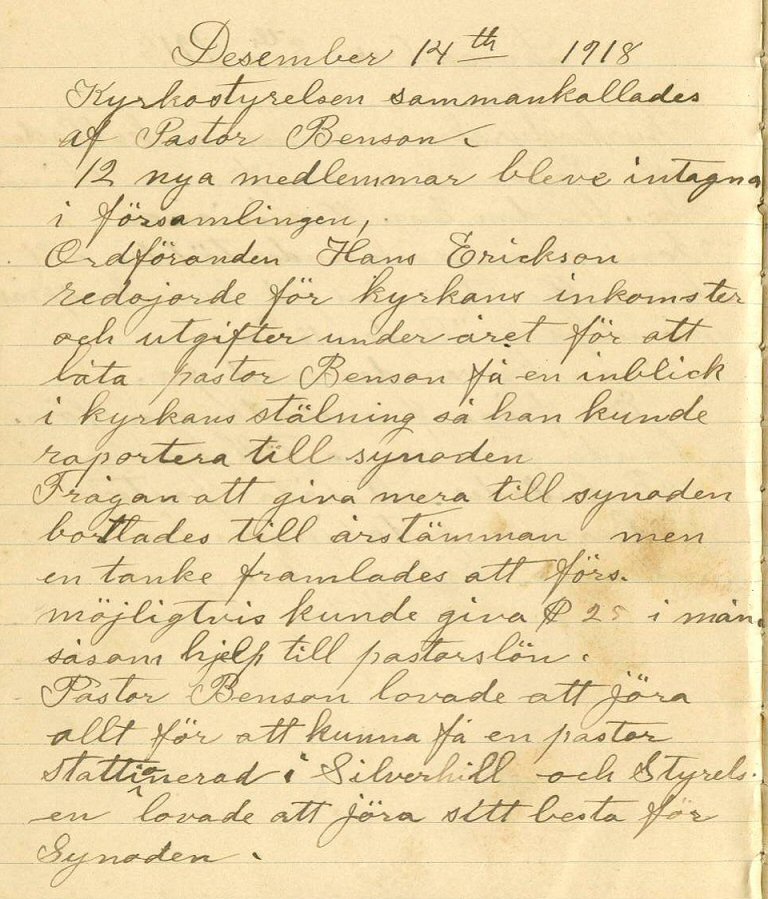 Desember 14th 1918
Kyrkostyrelsen sammankallades
af Pastor Benson.
12 nya medlemmar bleve intagna
i församlingen,
Ordföranden Hans Erickson
redojorde för kyrkans inkomster
och utgifter under året för att
låta pastor Benson få en inblick
i kyrkans stälning så han kunde
raportera till synoden
Frågan att giva mera till synoden
bortlades till årstämman men
en tanke framlades att förs.
möjligtvis kunde giva $25 i mån.
såsom hjelp till pastorslön.
Pastor Benson lovade att jöra
allt för att kunna få en pastor
stattionerad i Silverhill och Styrels-
en lovade att jöra sitt besta för
Synoden.